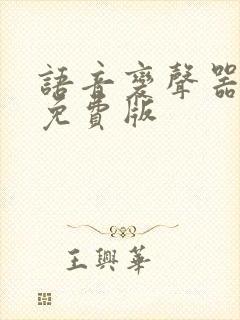 語音變聲器
免費版
王興華